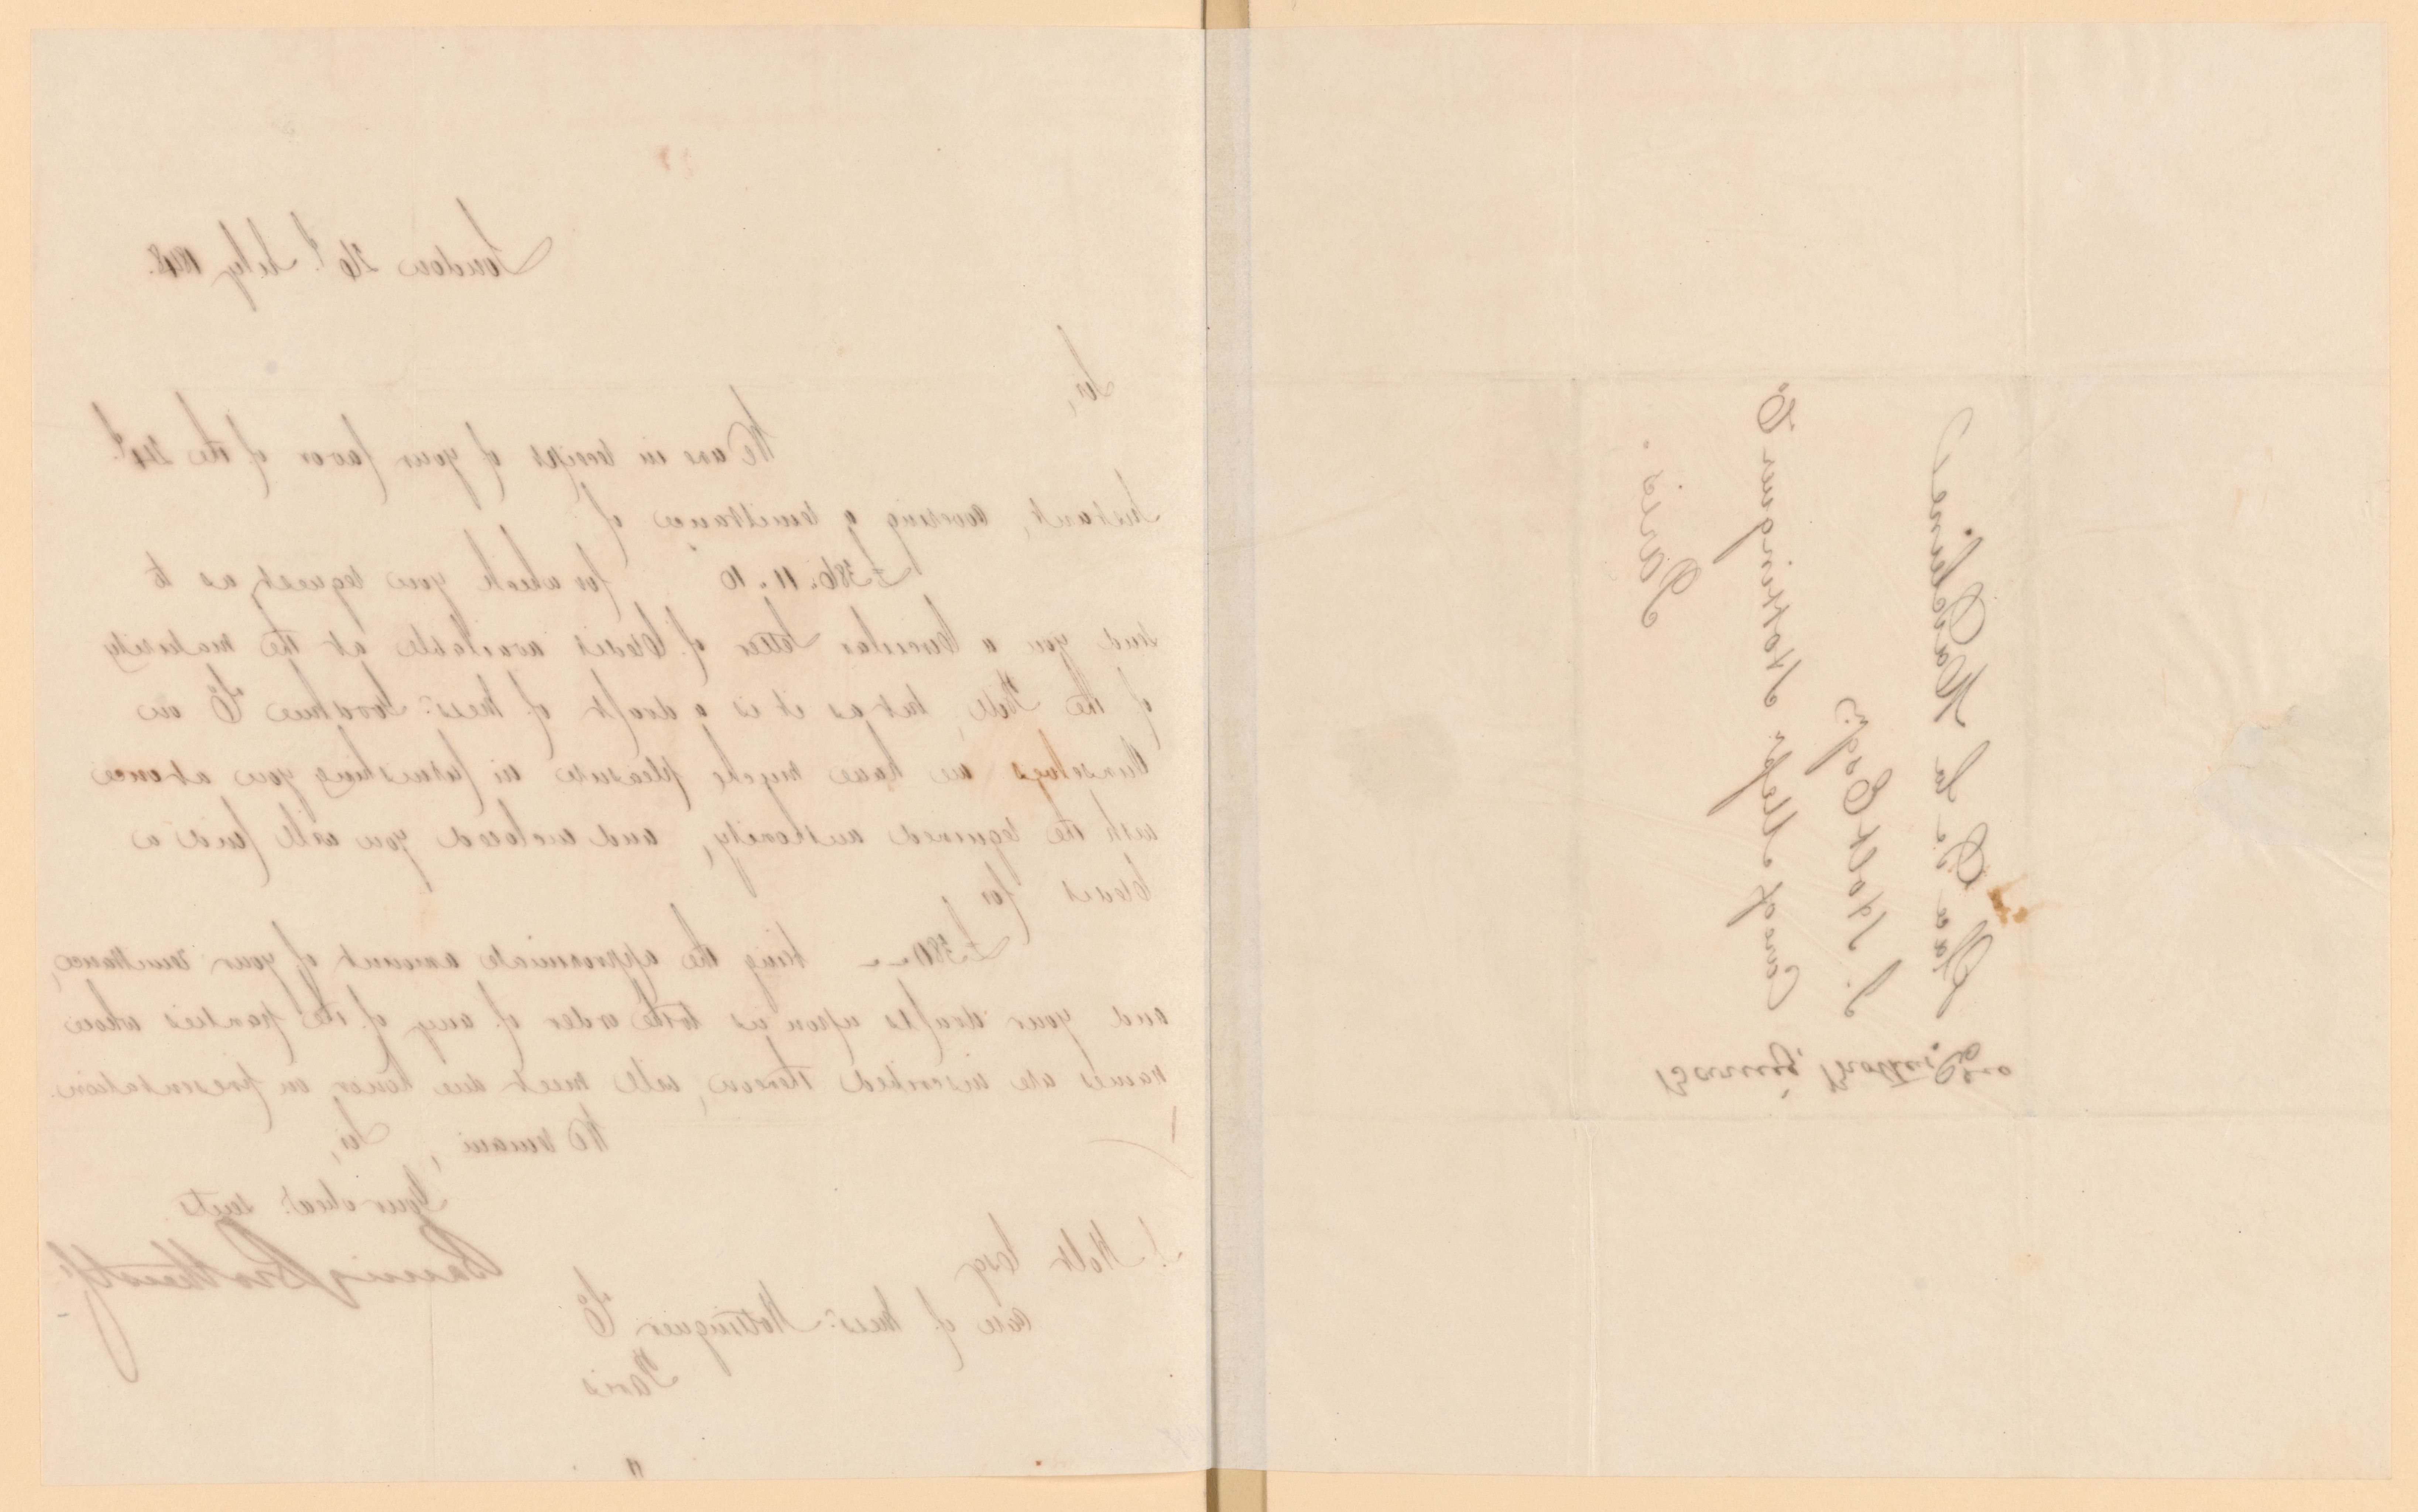 London 26th July 1848.
Sir,
We are in receipt of your favor of the 24th
Instant, covering a remittance of
£386.11.10 for which you request us to
send you a Circular Letter of Credit available at the maturity
of the Bill, but as it is a draft of Mess: & Co on
Ourselves we have much pleasure in furnishing you at once
with the required authority, and enclosed you will find a
Credit for
£380 -- being the approximate amount of your remittance,
and your drafts upon us to the order of any of the parties whose
names are inscribed thereon, will meet due honor on presentation.
We remain, Sir,
Your obedt. servts
Baring Brothers & Co
Holt Esq
care of Mess: Hottinguer & Co
Paris
Holt Esqr.
Care of Messrs. Hottinguer &
Paris.
Baring, Brothers & Co